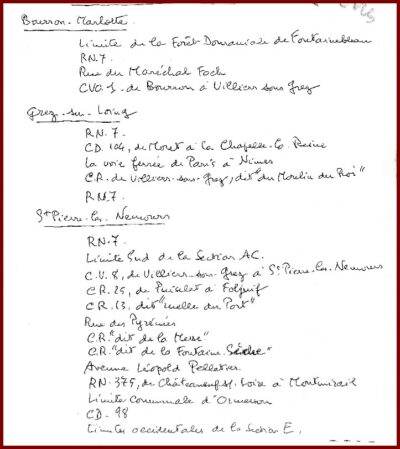 Bourron-Marlotte
Limite de la Forêt Domaniale de Fontainebleau
RN.7.
Rue du Maréchal Foch
CVO.1. de Bourron à Villiers sous Grez
Grez-sur-Loing
RN.7.
CD.104, de Moret à la Chapelle-la Reine
La voie ferrée de Paris à Nîmes
C.R. de Villiers-sous-Grez, dit "du Moulin du Roi"
RN.7.
St Pierre-les Nemours
RN.7.
Limite Sud de la Section AC.
C.V.8, de Villiers-sous-Grez à St Pierre-les Nemours
CR.25, de Puiselet à Foljuif
CR.13, dit "ruelle du Port"
Rue des Pyrénées
C.R. "dit de la Messe"
C.R. "dit de la Fontaine Sèche"
Avenue Léopold Pelletier
RN.375, de Châteauneuf s/. Loire à Montmirail
Limite communale d'Ormesson
CD-98
Limites occidentales de la Section E,